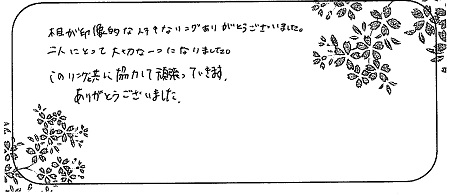 相が印像的なステキなリングありがとうございました。
二人にとって大切な一つになりました。
このリングと共に協力して頑張っていきます。
ありがとうございました。